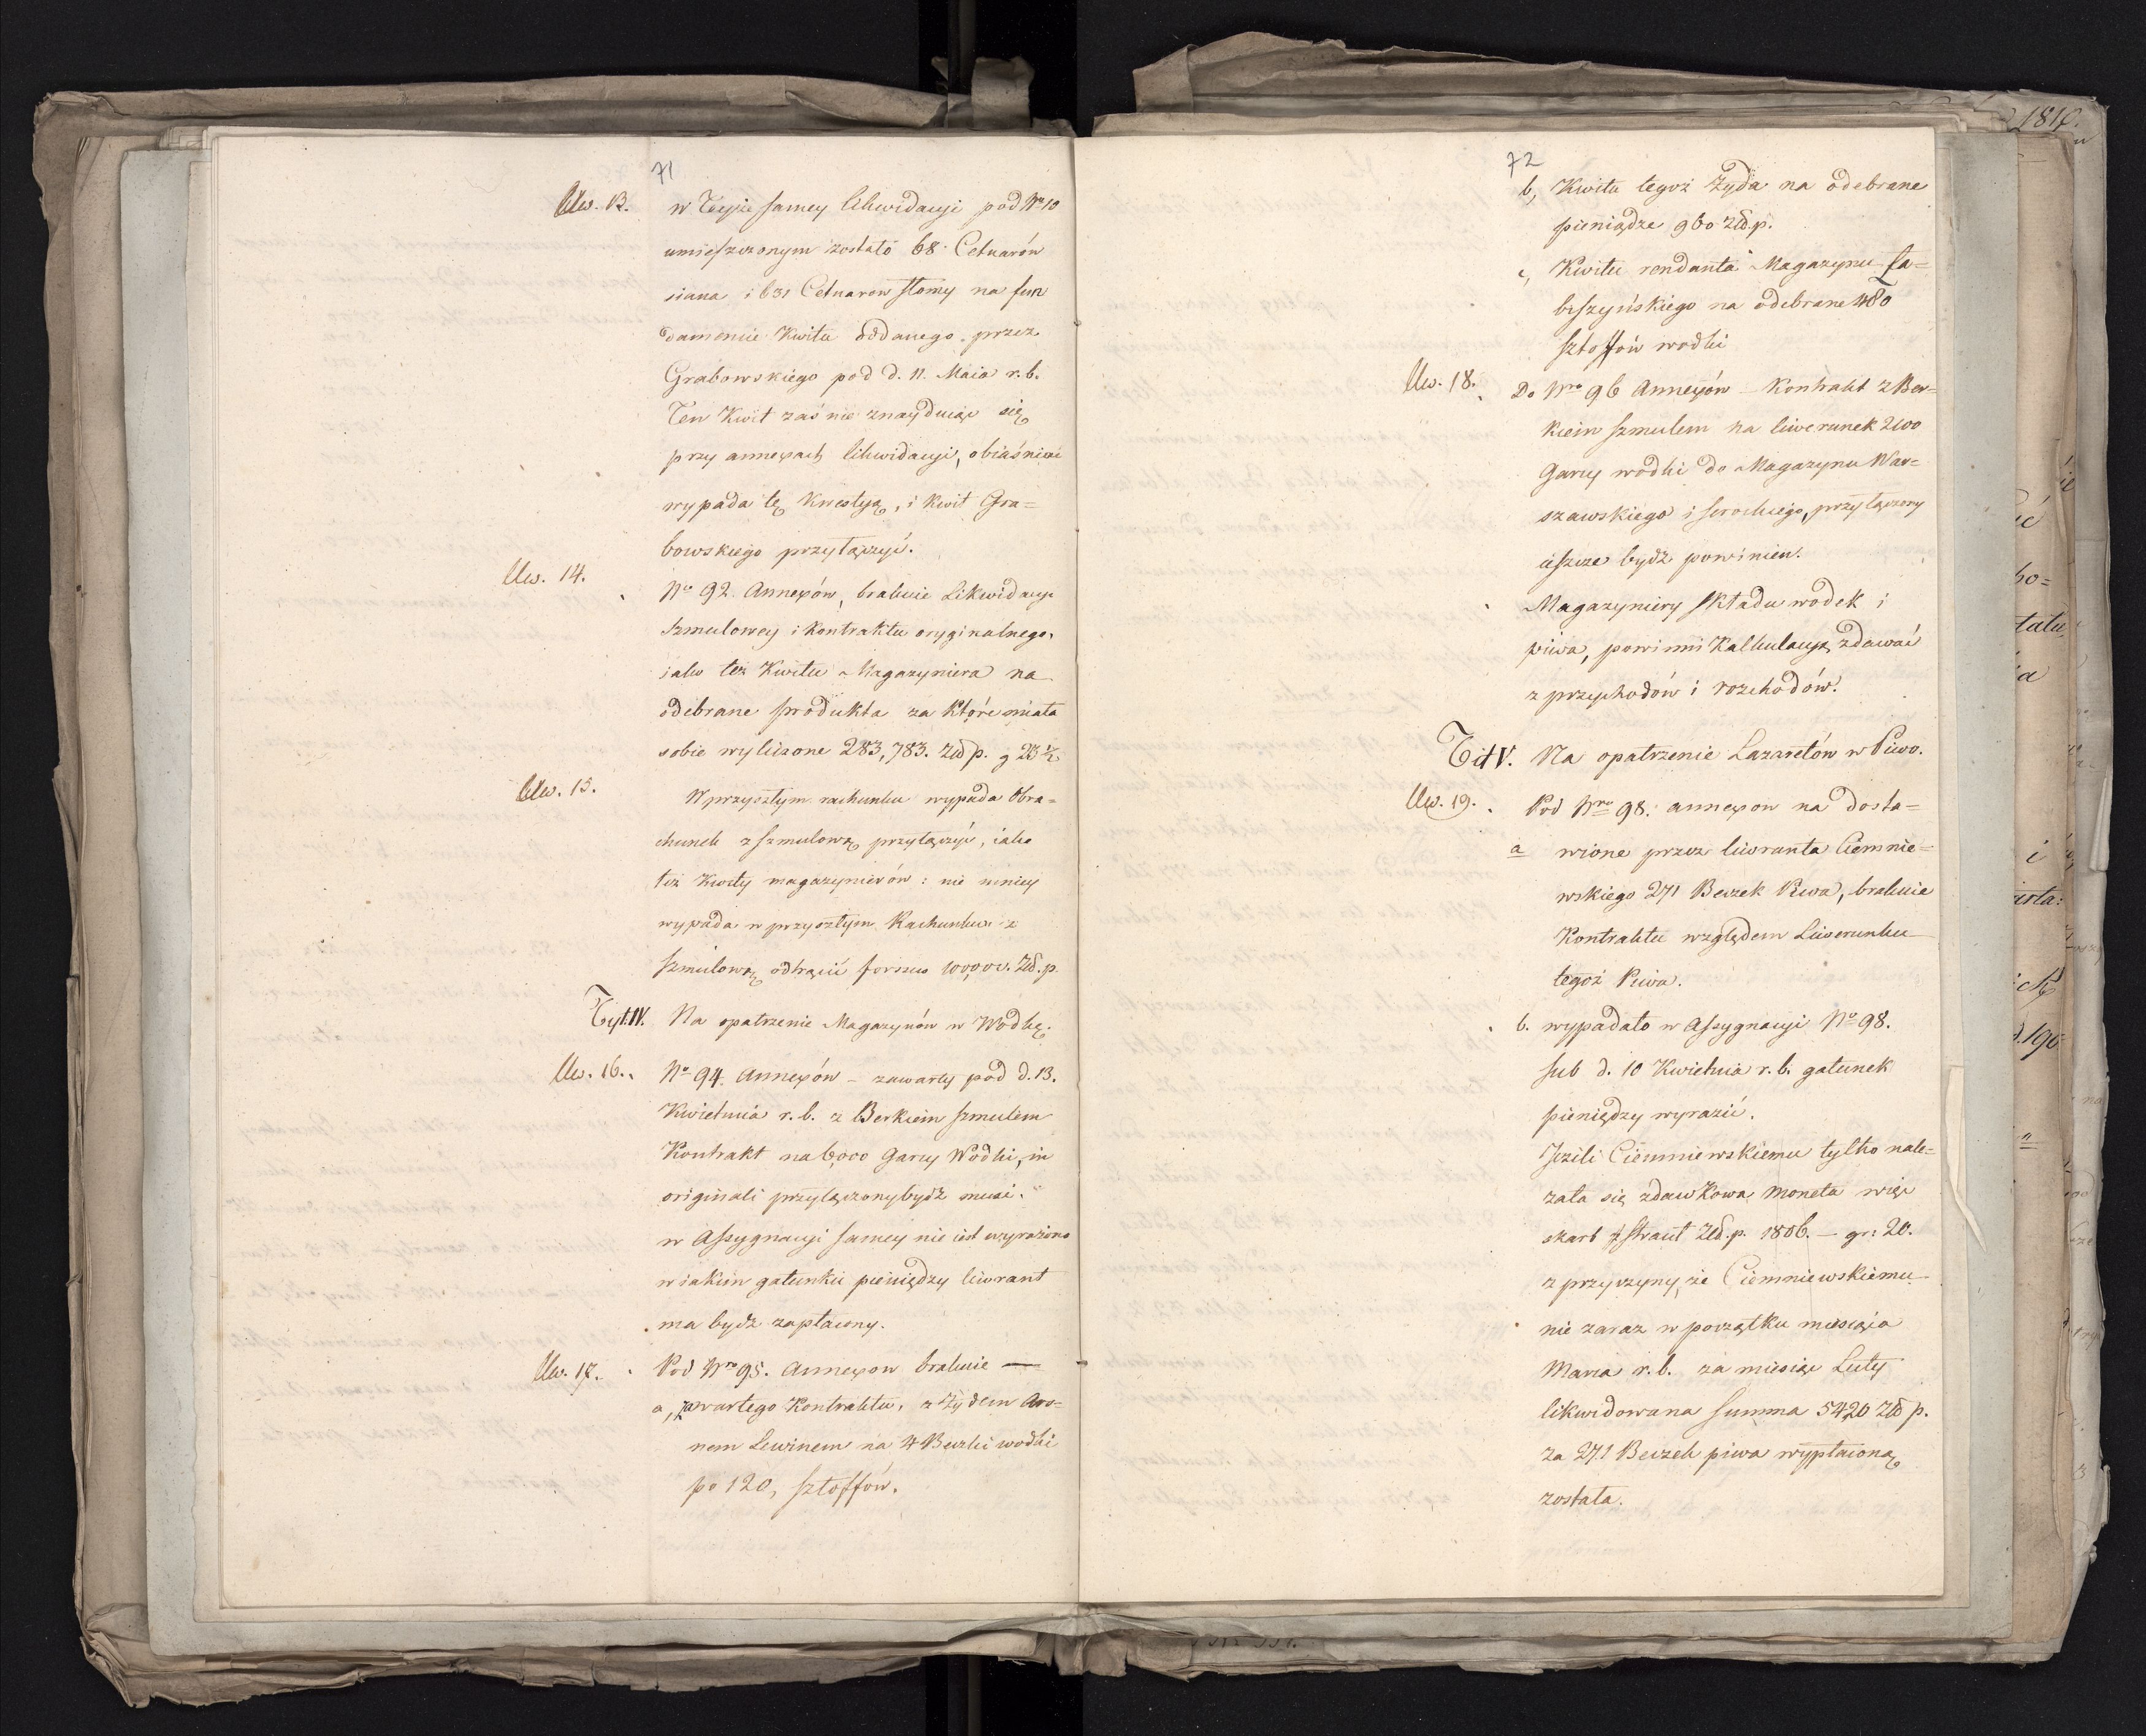 71
Uw. 13. w Teyże samey likwidacyi pod No 10
umieszczonym zostało 68 Cetnarów
siana i 631 Cetnarow słomy na fun
damencie Kwitu oddanego przez
Grabowskiego pod d. 11. Maia r. b.
Ten Kwit zaś nie znayduiąc się
przy annexach likwidacyi, obiaśnić
wypada tę kwestyą, i kwit Gra=
bowskiego przyłączyć.
Uw. 14. No 92. Annexów, brakuie Likwidacyi
Szmulowey i kontraktu oryginalnego,
iako też Kwitu Magazyniera na
odebrane produkta za które miała
sobie wyliczone 283,783. Złp. g 23 1/2
Uw. 15. W przyszłym rachunku wypada Obra=
chunek z Szmulową przyłączyć, iako
też Kwity magazynierów: nie mniey
wypada w przyszłym Rachunku z
Szmulową odtrącić forszus 100,000. Zł. p.
Tyt. IV. Na opatrzenie Magazynów w Wodkę.
Uw. 16. No 94. Annexów – zawarty pod d. 13.
Kwietnia r. b. z Berkiem Szmulem
Kontrakt na 6,000 Garcy Wodki, in
originali przyłączony bydź musi.
w Assygnacyi samey nie iest wyrażono
w iakim gatunku pieniędzy liwerant
ma bydź zapłacony.
Uw. 17. Pod Nro 95. Annexow brakuie —
a, zawartego Kontraktu, z Żydem Aro=
nem Lewinem na 4 Beczki wodki
po 120, sztoffów.
72
b, Kwitu tegoż Żyda na odebrane
pieniądze 960 złp.
c, Kwitu rendanta Magazynu Ła=
biszyńskiego na odebrane 480
sztoffów wodki
Uw. 18. Do Nro 96 Annexów – Kontrakt z Ber=
kiem Szmulem na liwerunek 2400
Garcy wodki do Magazynu War=
szawskiego i Serockiego, przyłączony
ieszcze bydź powinien.
Magazyniery składu wodek i
piwa, powinni Kalkulacyą zdawać
z przychodów i rozchodów.
Tit V. Na opatrzenie Lazaretów w Piwo.
Uw. 19. Pod Nro 98. annexow na dosta=
a wione przez liweranta Ciemnie=
wskiego 271 Beczek Piwa, brakuie
Kontraktu względem Liwerunku
tegoż Piwa.
b. wypadało w Assygnacyi No 98.
sub d. 10 Kwietnia r. b. gatunek
pieniędzy wyrazić.
Jeżeli Ciemniewskiemu tylko nale=
żała się zdawkowa moneta więc
skarb stracił Złd. p. 1806. – gr: 20.
z przyczyny, że Ciemniewskiemu
nie zaraz w początku miesiąca
Marca r. b. za miesiąc Luty
likwidowana summa 5420 Złd p.
za 271 Beczek piwa wypłaconą
została.